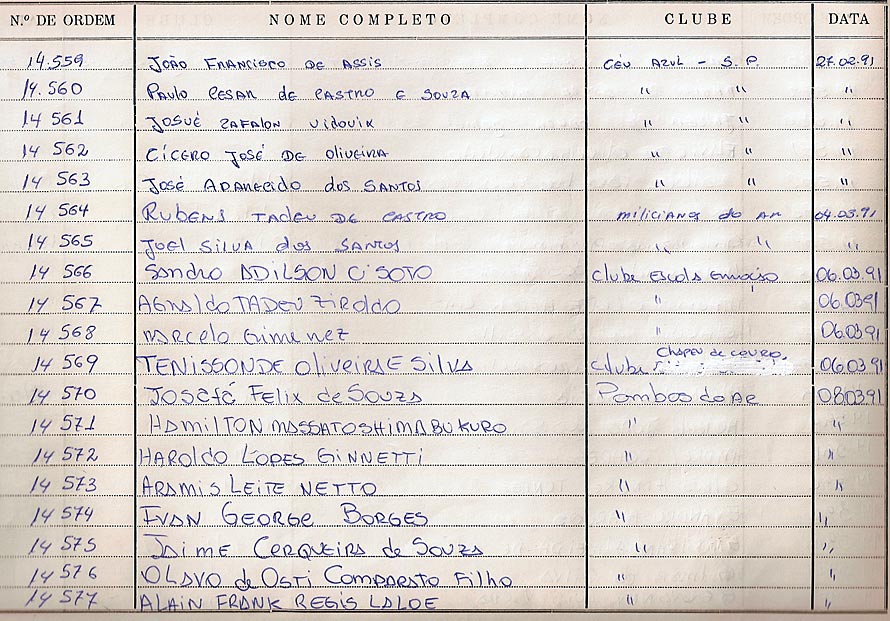 N.º DE ORDEM NOME COMPLETO CLUBE DATA
14.559 JOÃO FRANCISCO DE ASSIS CÉU AZUL - S.P. 27.02.91
14.560 PAULO CESAR de CASTRO E SOUZA " " "
14 561 JOSUÉ ZAFALON VIDOVIX " " "
14 562 CÍCERO JOSÉ DE OLIVEIRA " " "
14 563 JOSÉ APARECIDO dos SANTOS " " "
14 564 RUBENS TADEU DE CASTRO milicianos do AR 04.03.91
14 565 JOEL SILVA dos SANTOS " " "
14 566 SANDRO ADILSON C. SOTO Clube Escola 06.03.91
14 567 AGNALDO TADEU ZIROLDO " 06.0391
14 568 MARCELO GIMENEZ " 06.03.91
14 569 TENISSON DE OLIVEIRA E SILVA Clube Chapeu de couro. 06.03.91
14 570 JOSÉ Felix de Souza Pombos do Ar 08.0391
14 571 HAMILTON MASSATOSHIMABUKURO " "
14 572 HAROLDO LOPES GINNETTI " "
14 573 ARAMIS LEITE NETTO " "
14 574 IVAN GEORGE BORGES " "
14 575 JAIME CERQUEIRA de SOUZA " "
14 576 OLAVO de OSTI COMPARATO Filho " "
14 577 ALAIN FRANK REGIS LALOE " "